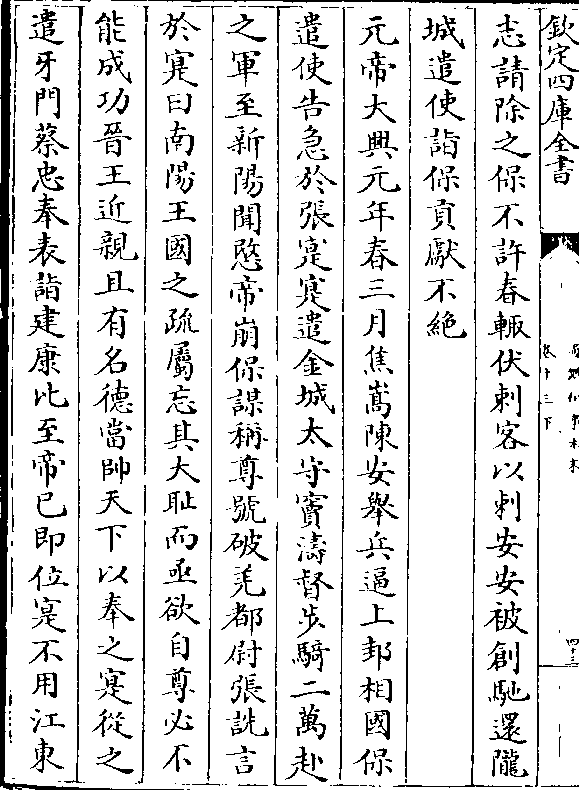 欽定四庫全書
卷十三下
志請除之保不許春輒伏刺客以刺安安被創馳還隴
城遣使詣保貢獻不絶
元帝大興元年春三月焦嵩陳安舉兵逼上邽相國保
遣使告急於張寔寔遣金城太守竇濤督步騎二萬赴
之軍至新陽聞愍帝崩保謀稱尊號破羌都尉張詵言
於寔曰南陽王國之疏屬忘其大恥而亟欲自尊必不
能成功晉王近親且有名德當帥天下以奉之寔從之
遣牙門蔡忠奉表詣建康比至帝已即位寔不用江東